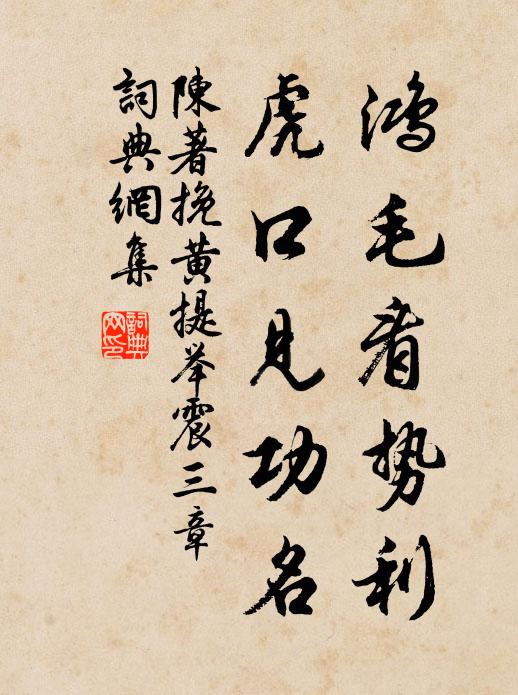 鸿毛看势利
虎口見功名
陳著挽黄提举震三章
詞典網集
詞典
网印